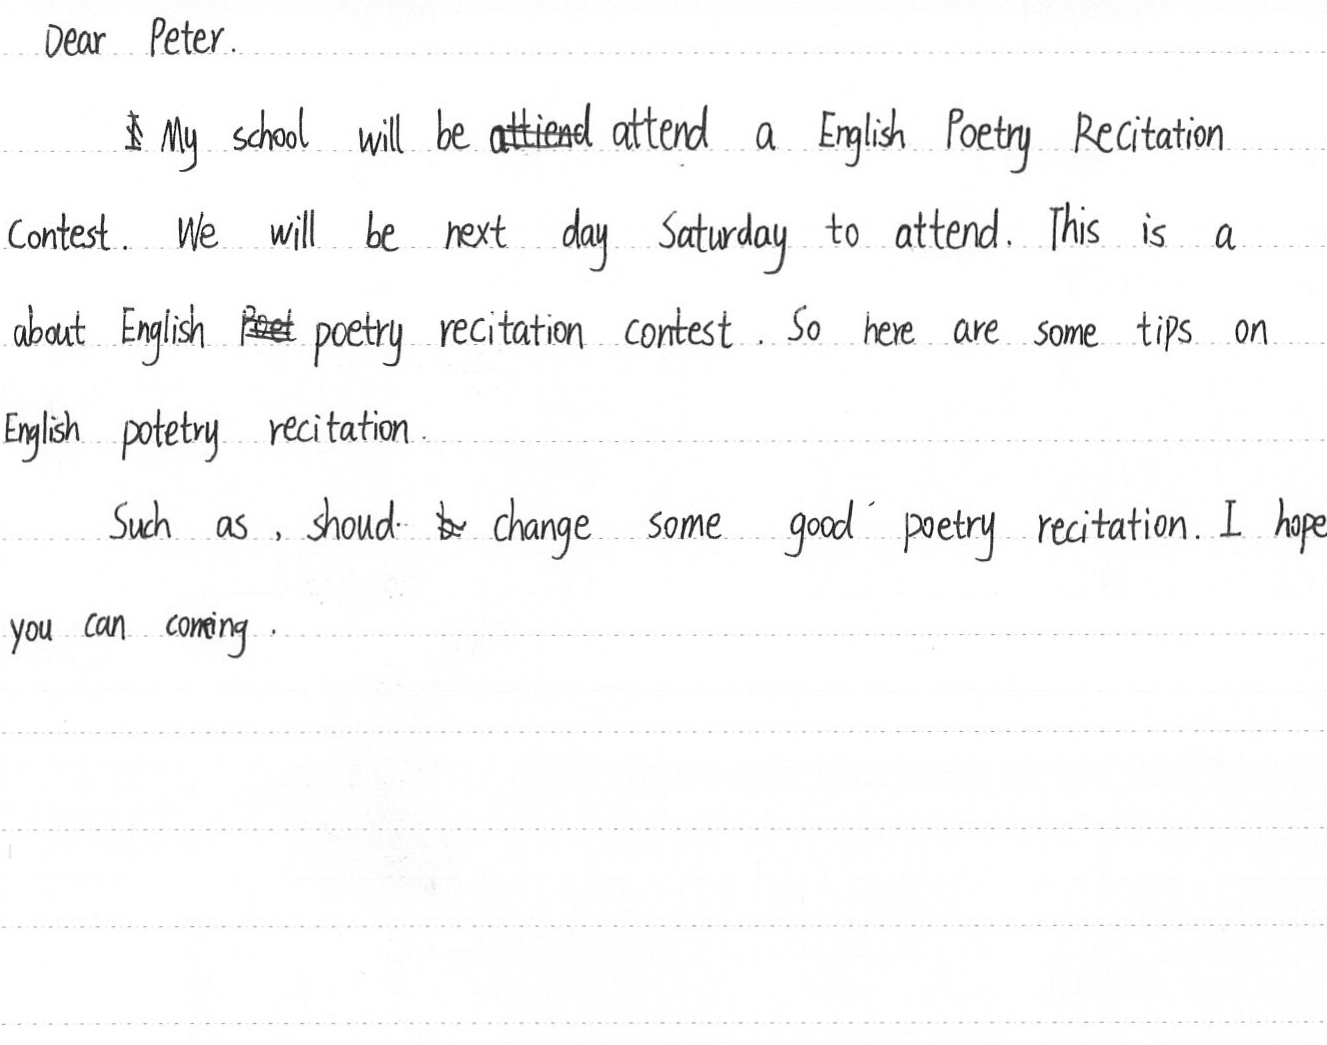 Dear Peter.
My school will be attend a English Poetry Recitation
Contest. We will be next day Saturday to attend. This is a
about English poetry recitation contest. So here are some tips on
English potetry recitation.
Such as, shoud change some good poetry recitation. I hope
you can coming.